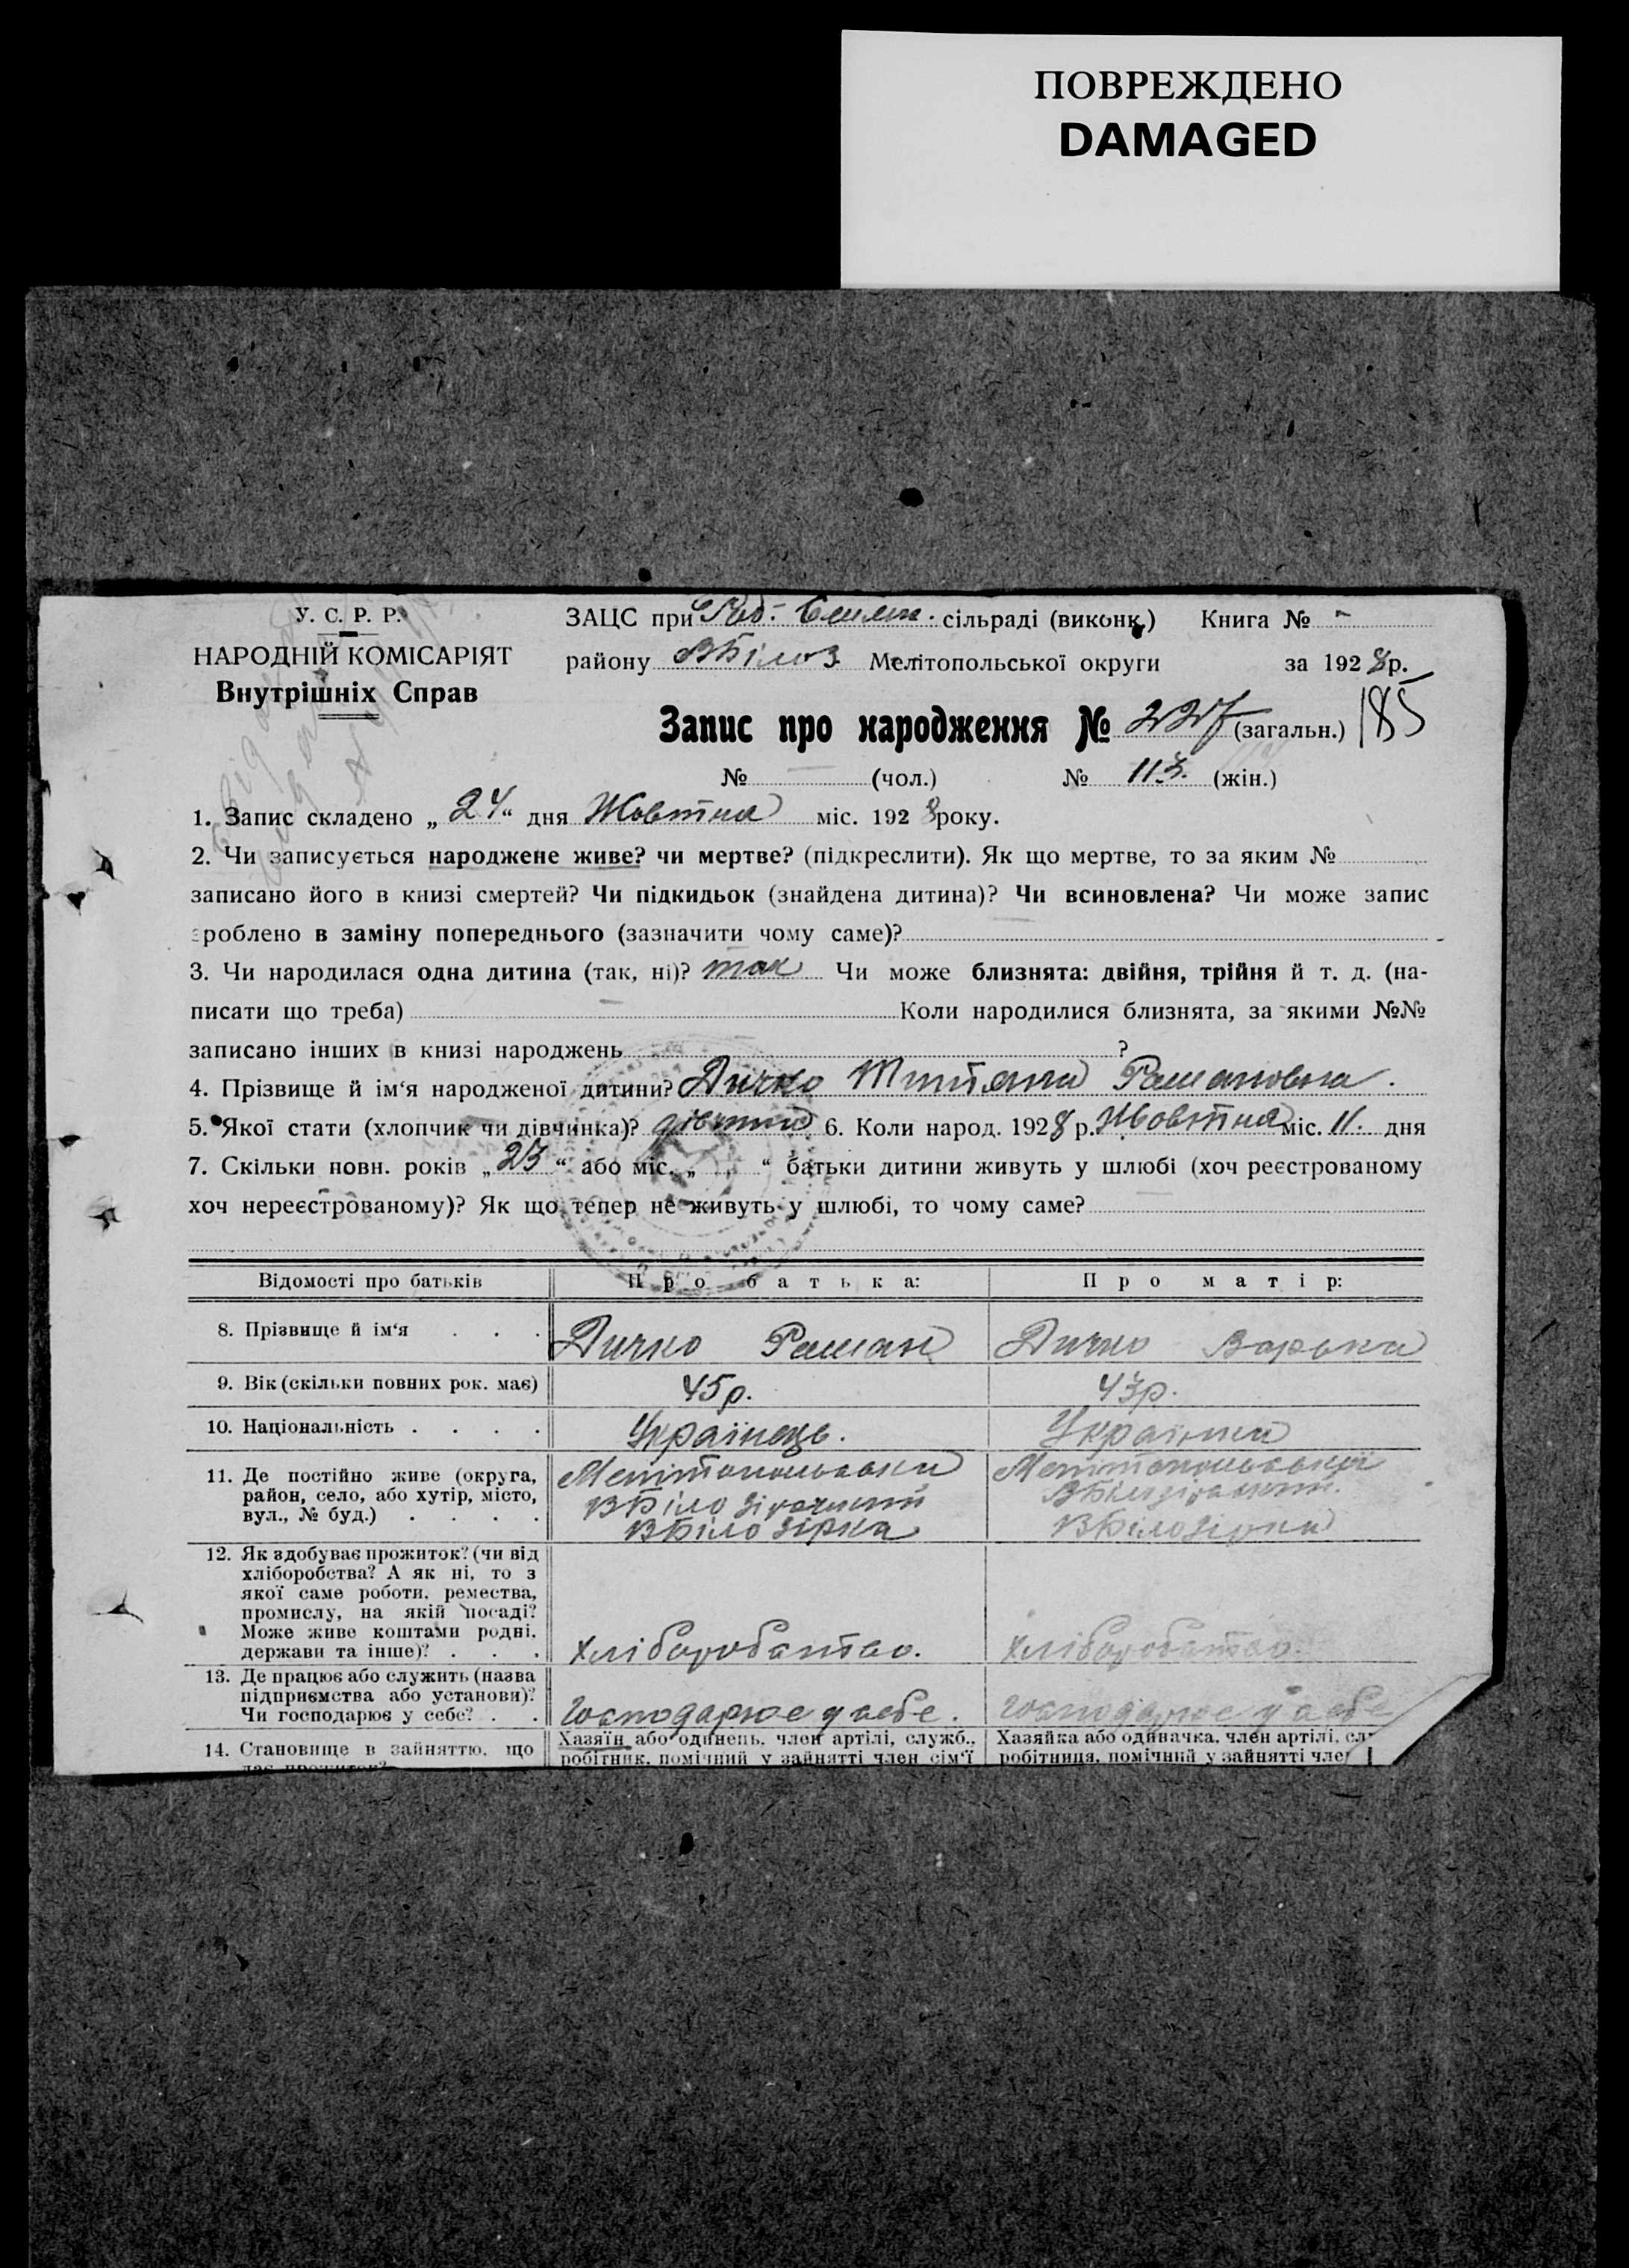 ПОВРЕЖДЕНО
DAMAGED
У. С. Р. Р.
НАРОДНІЙ КОМІСАРІЯТ
Внутрішніх Справ
ЗАЦС при сільраді (виконк.) Книга № -
району ВБілоз. Мелітопольської округи за 1928 р.
Запис про народження № 227 (загальн.) 185
№ (чол.) № 113. (жін.)
1. Запис складено „ 24 “ дня Жовтня міс. 1928 року.
2. Чи записується народжене живе? чи мертве? (підкреслити). Як що мертве, то за яким №
записано його в книзі смертей? Чи підкидьок (знайдена дитина)? Чи всиновлена? Чи може запис
зроблено в заміну попереднього (зазначити чому саме)?
3. Чи народилася одна дитина (так, ні)? так Чи може близнята: двійня, трійня й т. д. (на-
писати що треба) Коли народилися близнята, за якими №№
записано інших в книзі народжень ?
4. Прізвище й ім‘я народженої дитини? Дичко Титяна Романовна.
5. Якої стати (хлопчик чи дівчинка)? 6. Коли народ. 1928 р. Жовтня міс. 11. дня
7. Скільки повн. років „ 23 “ або міс. „ “ батьки дитини живуть у шлюбі (хоч реєстрованому
хоч нереєстрованому)? Як що тепер не живуть у шлюбі, то чому саме?
Відомості про батьків Про батька: Про матір:
8. Прізвище й ім‘я . . . Дичко Роман Дичко Варька
9. Вік (скільки повних рок. має) 45 р. 43 р.
10. Національність . . . . Українець. Українка
11. Де постійно живе (округа,
район, село, або хутір, місто,
вул., № буд.) . . . .
Мелітопольська
ВБілозірський
ВБілозірка
Мелітопольської
ВБілозірський.
ВБілозірка
12. Як здобуває прожиток? (чи від
хліборобства? А як ні, то з
якої саме роботи, ремества,
промислу, на якій посаді?
Може живе коштами родні,
держави та інше)? . . .
Хліборобство. Хліборобство.
13. Де працює або служить (назва
підприємства або установи)?
Чи господарює у себе? . .
Господарює у себе. Господарює у себе
14. Становище в зайняттю, що
дає прожиток?
Хазяїн або одинець, член артілі, служб.,
робітник, помічний у зайнятті член сім‘ї
Хазяйка або одиначка, член артілі, сл
робітниця, помічний у зайнятті чле